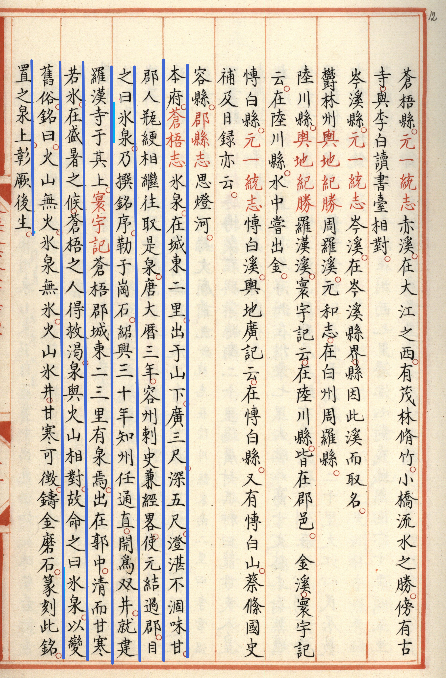 12
蒼梧縣元一統志赤溪在大江之西有茂林脩竹小橋流水之勝傍有古
寺與李白讀書臺相對
岑溪縣元一統志岑溪在岑溪縣界縣因此溪而取名
欝林州輿地紀勝周羅溪元和志在白州周羅縣
陸川縣輿地紀勝羅漢溪寰宇記云在陸川縣皆在郡邑　金溪寰宇記
云在陸川縣水中嘗出金
愽白縣元一統志愽白溪輿地廣記云在愽白縣又有愽白山蔡絛國史
補及目録亦云
容縣郡縣志思燈河
本府蒼梧志氷泉在城東二里出于山下廣三尺深五尺澄湛不涸味甘
郡人瓶綆相繼往取是泉唐大曆三年容州刺史兼經畧使元結過郡目
之曰氷泉乃撰銘序勒于崗石紹興三十年知州任通直開為双井就建
羅漢寺于其上寰宇記蒼梧郡城東二三里有泉焉出在郭中清而甘寒
若氷在盛暑之候蒼梧之人得救渴泉與火山相對故命之曰氷泉以變
舊俗銘曰火山無火氷泉無氷火山氷井甘寒可徴鑄金磨石篆刻此銘
置之泉上彰厥後生